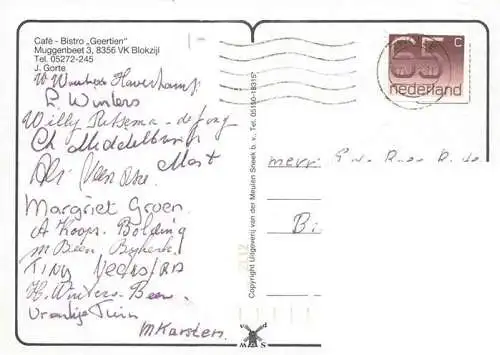 Café - Bistro „Geertien"
Muggenbeet 3, 8356 VK Blokzijl
Tel. 05272-245
J. Gorte
W Winters Haverkamp
R. Winters
Willy Ritsema - de Jong
Ch Middelbrink
Mast
Margriet Groen
A Koops. Bolding
M Been Bijkerk
Tiny
H. Winters-Been
Vrontje Tuin
M Karsten
Copyright Uitgeverij van der Meulen Sneek b. v. Tel. 05150-18315*
65 C
nederland
Bi
v d
W S